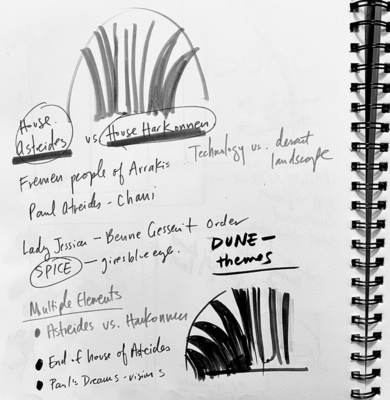 House
Astreides vs House Harkonnen
Technology vs. desert
landscape
Fremen people of Arrakis
Paul Atreides - Chani
Lady Jessica - Benne Gesserit Order
SPICE - gives blue eye
DUNE -
themes
Multiple Elements
• Astreides vs. Harkonnen
• End of house of Asteides
• Paul's Dreams - visions